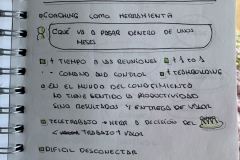 COACHING COMO HERRAMIENTA
QUE VA A PASAR DENTRO DE UNOS
MESES
+ TIEMPO A LAS REUNIONES + 1 to 1
- COMAND AND CONTROL + TEAMBUILDING
EN EL MUNDO DEL CONOCIMIENTO
NO TIENE SENTIDO LA PRODUCTIVIDAD
SINO RESULTADOS Y ENTREGA DE VALOR
TELETRABAJO → HERR A DECISIÓN DEL
TRABAJO + VALOR
DIFICIL DESCONECTAR